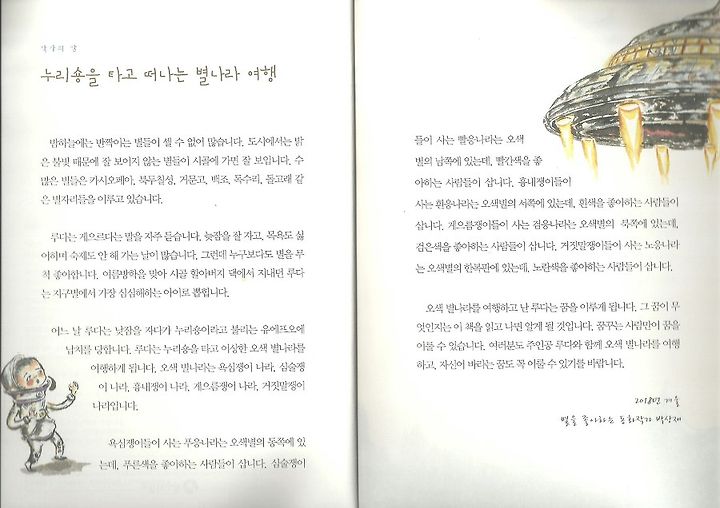 작가의 말
누리숑을 타고 떠나는 별나라 여행
밤하늘에는 반짝이는 별들이 셀 수 없이 많습니다. 도시에서는 밝
은 불빛 때문에 잘 보이지 않는 별들이 시골에 가면 잘 보입니다. 수
많은 별들은 카시오페아, 북두칠성, 거문고, 백조, 독수리, 돌고래 같
은 별자리들을 이루고 있습니다.
루다는 게으르다는 말을 자주 듣습니다. 늦잠을 잘 자고, 목욕도 싫
어하며 숙제도 안 해 가는 날이 많습니다. 그런데 누구보다도 별을 무
척 좋아합니다. 여름방학을 맞아 시골 할아버지 댁에서 지내던 루다
는 지구별에서 가장 심심해하는 아이로 뽑힙니다.
어느 날 루다는 낮잠을 자다가 누리숑이라고 불리는 유에프오에
납치를 당합니다. 루다는 누리숑을 타고 이상한 오색 별나라를
여행하게 됩니다. 오색 별나라는 욕심쟁이 나라, 심술쟁
이 나라, 흉내쟁이 나라, 게으름쟁이 나라, 거짓말쟁이
나라입니다.
욕심쟁이들이 사는 푸웅나라는 오색별의 동쪽에 있
는데, 푸른색을 좋아하는 사람들이 삽니다. 심술쟁이
들이 사는 빨웅나라는 오색
별의 남쪽에 있는데, 빨간색을 좋
아하는 사람들이 삽니다. 흉내쟁이들이
사는 흰웅나라는 오색별의 서쪽에 있는데, 흰색을 좋아하는 사람들이
삽니다. 게으름쟁이들이 사는 검웅나라는 오색별의 북쪽에 있는데,
검은색을 좋아하는 사람들이 삽니다. 거짓말쟁이들이 사는 노웅나라
는 오색별의 한복판에 있는데, 노란색을 좋아하는 사람들이 삽니다.
오색 별나라를 여행하고 난 루다는 꿈을 이루게 됩니다. 그 꿈이 무
엇인지는 이 책을 읽고 나면 알게 될 것입니다. 꿈꾸는 사람만이 꿈을
이룰 수 있습니다. 여러분도 주인공 루다와 함께 오색 별나라를 여행
하고, 자신이 바라는 꿈도 꼭 이룰 수 있기를 바랍니다.
2018년 겨울
별을 좋아하는 동화작가 박상재